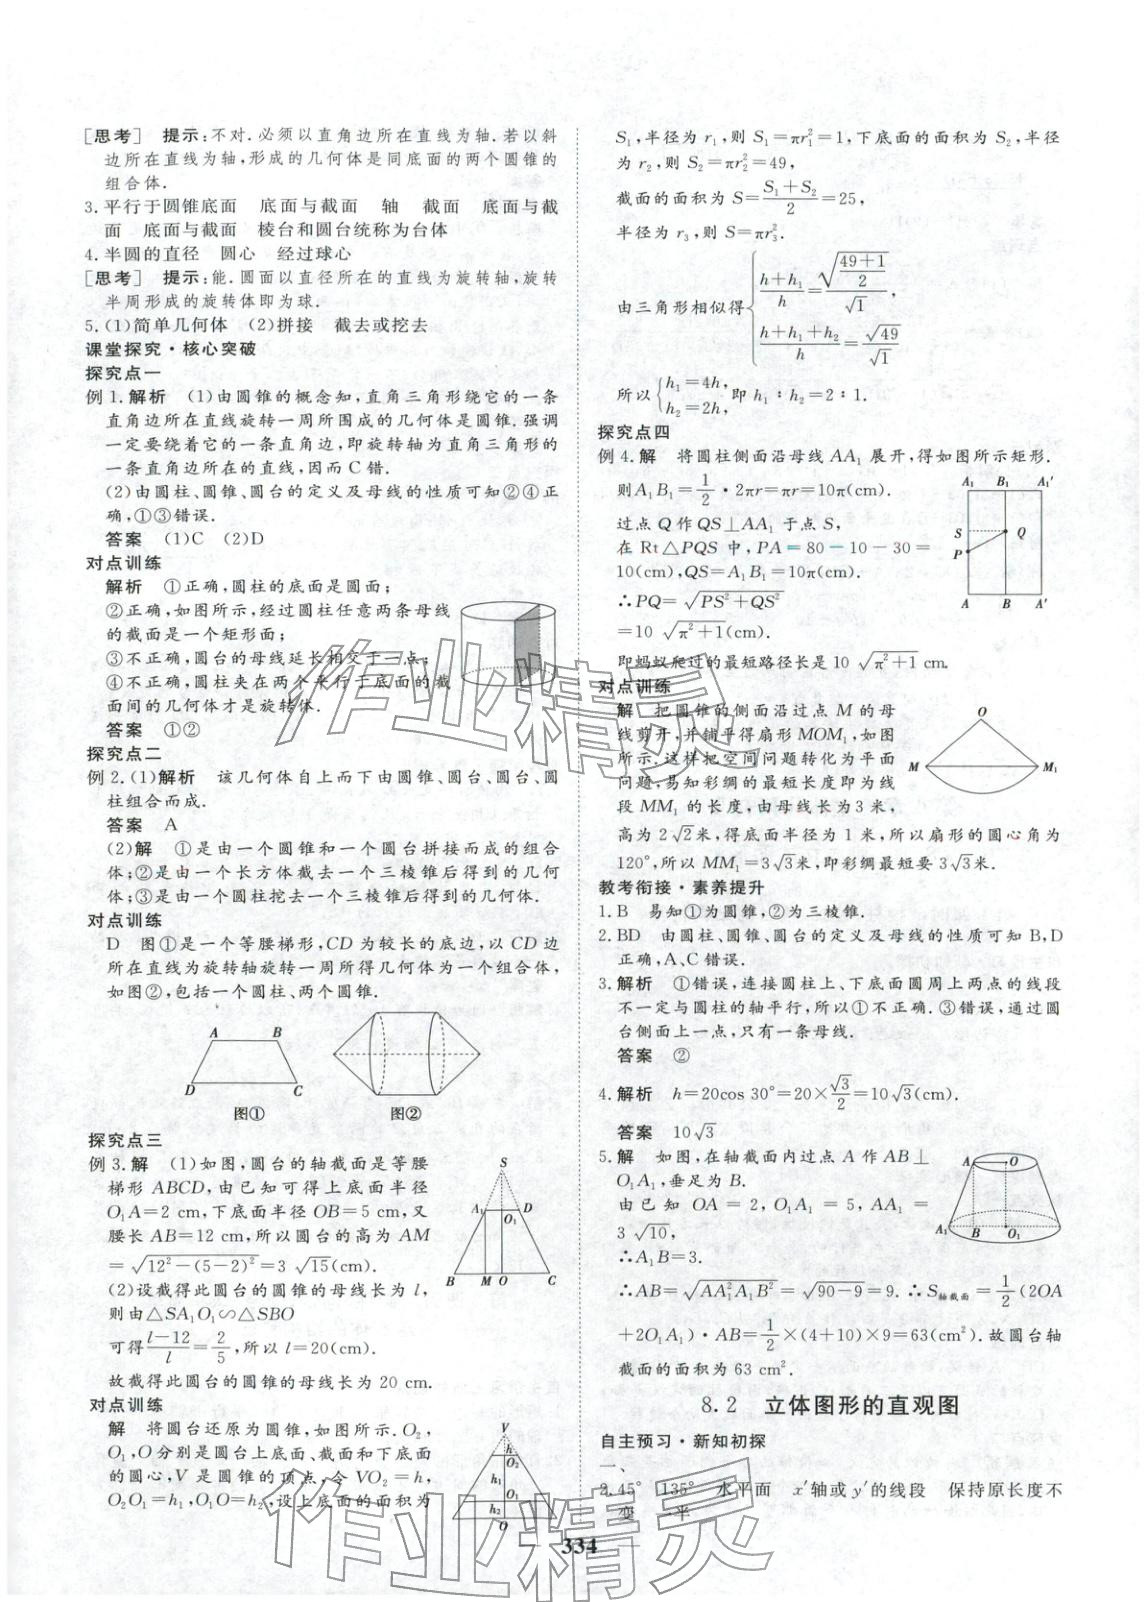 [思考]　提示:不对.必须以直角边所在直线为轴.若以斜
边所在直线为轴,形成的几何体是同底面的两个圆锥的
组合体.
3.平行于圆锥底面　底面与截面　轴　截面　底面与截
面　底面与截面　棱台和圆台统称为台体
4.半圆的直径　圆心　经过球心
[思考]　提示:能.圆面以直径所在的直线为旋转轴,旋转
半周形成的旋转体即为球.
5.(1)简单几何体　(2)拼接　截去或挖去
课堂探究·核心突破
探究点一
例1.解析　(1)由圆锥的概念知,直角三角形绕它的一条
直角边所在直线旋转一周所围成的几何体是圆锥.强调
一定要绕着它的一条直角边,即旋转轴为直角三角形的
一条直角边所在的直线,因而C错.
(2)由圆柱、圆锥、圆台的定义及母线的性质可知②④正
确,①③错误.
答案　(1)C　(2)D
对点训练
解析　①正确,圆柱的底面是圆面;
②正确,如图所示,经过圆柱任意两条母线
的截面是一个矩形面;
③不正确,圆台的母线延长相交于一点;
④不正确,圆柱夹在两个平行于底面的截
面间的几何体才是旋转体.
答案　①②
探究点二
例2.(1)解析　该几何体自上而下由圆锥、圆台、圆台、圆
柱组合而成.
答案　A
(2)解　①是由一个圆锥和一个圆台拼接而成的组合
体;②是由一个长方体截去一个三棱锥后得到的几何
体;③是由一个圆柱挖去一个三棱锥后得到的几何体.
对点训练
D　图①是一个等腰梯形,CD为较长的底边,以CD边
所在直线为旋转轴旋转一周所得几何体为一个组合体,
如图②,包括一个圆柱、两个圆锥.
A B
D C
图①　图②
探究点三
例3.解　(1)如图,圆台的轴截面是等腰
梯形ABCD,由已知可得上底面半径
O₁A=2 cm,下底面半径OB=5 cm,又
腰长AB=12 cm,所以圆台的高为AM
=√(12²-(5-2)²)=3√15(cm).
(2)设截得此圆台的圆锥的母线长为l,
则由△SA₁O₁∽△SBO
可得(l-12)/l=2/5,所以l=20(cm).
故截得此圆台的圆锥的母线长为20 cm.
S
A₁ O₁ D
B M O C
对点训练
解　将圆台还原为圆锥,如图所示.O₂,
O₁,O分别是圆台上底面、截面和下底面
的圆心,V是圆锥的顶点,令VO₂=h,
O₂O₁=h₁,O₁O=h₂,设上底面的面积为
V
h
O₂
h₁
O₁
h₂
O
S₁,半径为r₁,则S₁=πr₁²=1,下底面的面积为S₂,半径
为r₂,则S₂=πr₂²=49,
截面的面积为S=(S₁+S₂)/2=25,
半径为r₃,则S=πr₃².
由三角形相似得{(h+h₁)/h=√((49+1)/2)/√1,
(h+h₁+h₂)/h=√49/√1
所以{h₁=4h,
h₂=2h,即h₁∶h₂=2∶1.
探究点四
例4.解　将圆柱侧面沿母线AA₁展开,得如图所示矩形.
则A₁B₁=1/2·2πr=πr=10π(cm).
过点Q作QS⊥AA₁于点S,
在Rt△PQS中,PA=80-10-30=
10(cm),QS=A₁B₁=10π(cm).
∴PQ=√(PS²+QS²)
=10√(π²+1)(cm).
即蚂蚁爬过的最短路径长是10√(π²+1) cm.
A₁ B₁ A₁′
S Q
P
A B A′
对点训练
解　把圆锥的侧面沿过点M的母
线剪开,并铺平得扇形MOM₁,如图
所示.这样把空间问题转化为平面
问题,易知彩绸的最短长度即为线
段MM₁的长度,由母线长为3米,
高为2√2米,得底面半径为1米,所以扇形的圆心角为
120°,所以MM₁=3√3米,即彩绸最短要3√3米.
O
M M₁
教考衔接·素养提升
1.B　易知①为圆锥,②为三棱锥.
2.BD　由圆柱、圆锥、圆台的定义及母线的性质可知B,D
正确,A、C错误.
3.解析　①错误,连接圆柱上、下底面圆周上两点的线段
不一定与圆柱的轴平行,所以①不正确.③错误,通过圆
台侧面上一点,只有一条母线.
答案　②
4.解析　h=20cos 30°=20×√3/2=10√3(cm).
答案　10√3
5.解　如图,在轴截面内过点A作AB⊥
O₁A₁,垂足为B.
由已知OA=2,O₁A₁=5,AA₁=
3√10,
∴A₁B=3.
∴AB=√(AA₁²A₁B²)=√(90-9)=9.∴S轴截面=1/2(2OA
+2O₁A₁)·AB=1/2×(4+10)×9=63(cm²).故圆台轴
截面的面积为63 cm².
A O
A₁ B O₁
8.2　立体图形的直观图
自主预习·新知初探
一、
2.45°　135°　水平面　x′轴或y′的线段　保持原长度不
变　一半
334
作业精灵
作业精灵